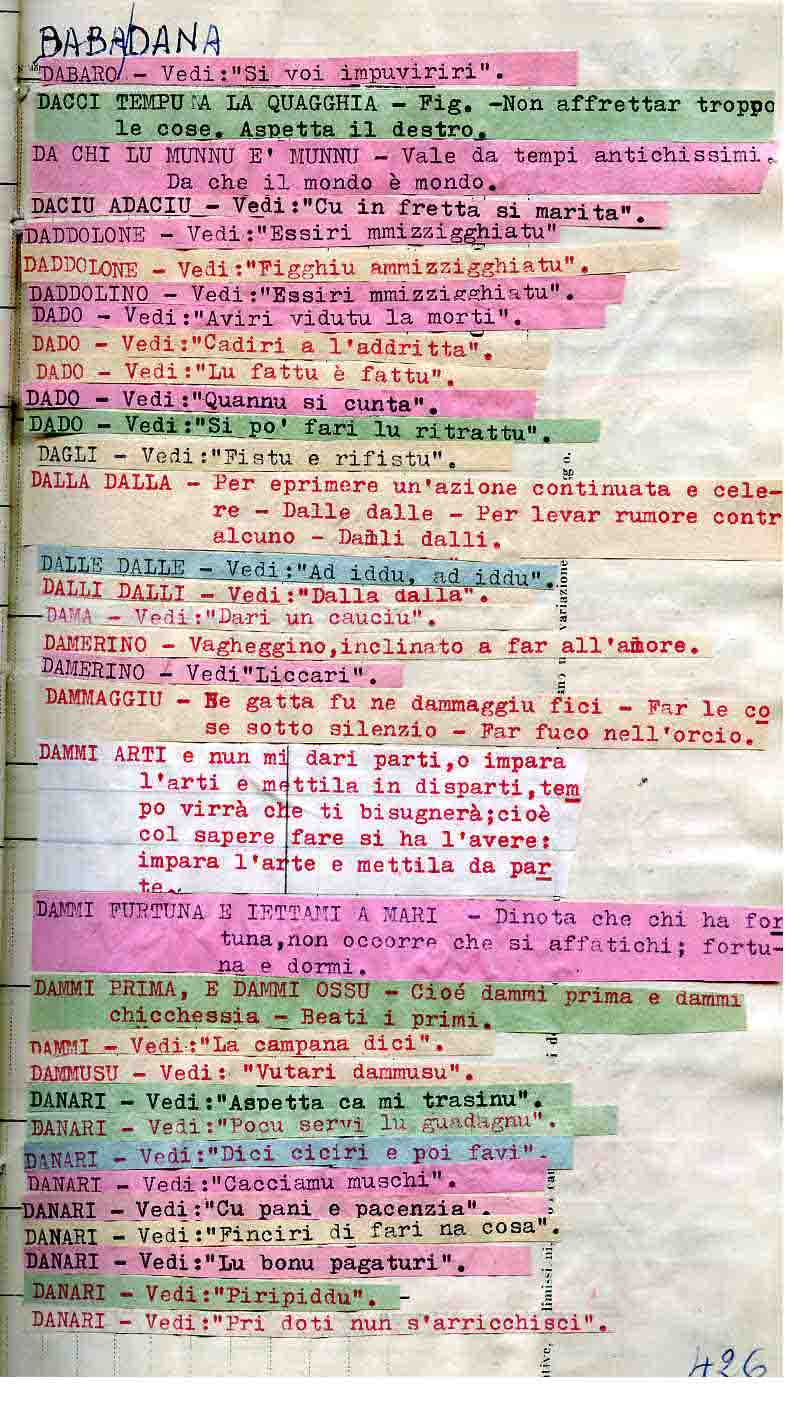 BABADANA
DABARO - Vedi:"Si voi impuviriri".
DACCI TEMPU A LA QUAGGHIA - Fig. -Non affrettar troppo
le cose. Aspetta il destro.
DA CHI LU MUNNU E' MUNNU - Vale da tempi antichissimi.
Da che il mondo è mondo.
DACIU ADACIU - Vedi:"Cu in fretta si marita".
DADDOLONE - Vedi:"Essiri mmizzigghiatu"
DADDOLONE - Vedi:"Figghiu ammizzigghiatu".
DADDOLINO - Vedi:"Essiri mmizzigghiatu".
DADO - Vedi:"Aviri vidutu la morti".
DADO - Vedi:"Cadiri a l'addritta".
DADO - Vedi:"Lu fattu è fattu".
DADO - Vedi:"Quannu si cunta".
DADO - Vedi:"Si po' fari lu ritrattu".
DAGLI - Vedi:"Fistu e rifistu".
DALLA DALLA - Per eprimere un'azione continuata e cele-
re - Dalle dalle - Per levar rumore contr
alcuno - Dalli dalli.
DALLE DALLE - Vedi:"Ad iddu, ad iddu".
DALLI DALLI - Vedi:"Dalla dalla".
DAMA - Vedi:"Dari un cauciu".
DAMERINO - Vagheggino,inclinato a far all'amore.
DAMERINO - Vedi"Liccari".
DAMMAGGIU - Ne gatta fu ne dammaggiu fici - Far le co
se sotto silenzio - Far fuco nell'orcio.
DAMMI ARTI e nun mi dari parti,o impara
l'arti e mettila in disparti,tem
po virrà che ti bisugnerà;cioè
col sapere fare si ha l'avere:
impara l'arte e mettila da par
te.
DAMMI FURTUNA E IETTAMI A MARI - Dinota che chi ha for
tuna,non occorre che si affatichi; fortu-
na e dormi.
DAMMI PRIMA, E DAMMI OSSU - Cioé dammi prima e dammi
chicchessia - Beati i primi.
DAMMI - Vedi:"La campana dici".
DAMMUSU - Vedi: "Vutari dammusu".
DANARI - Vedi:"Aspetta ca mi trasinu".
DANARI - Vedi:"Pocu servi lu guadagnu".
DANARI - Vedi:"Dici ciciri e poi favi".
DANARI - Vedi:"Cacciamu muschi".
DANARI - Vedi:"Cu pani e pacenzia".
DANARI - Vedi:"Finciri di fari na cosa".
DANARI - Vedi:"Lu bonu pagaturi".
DANARI - Vedi:"Piripiddu". -
DANARI - Vedi:"Pri doti nun s'arricchisci".
variazione
426